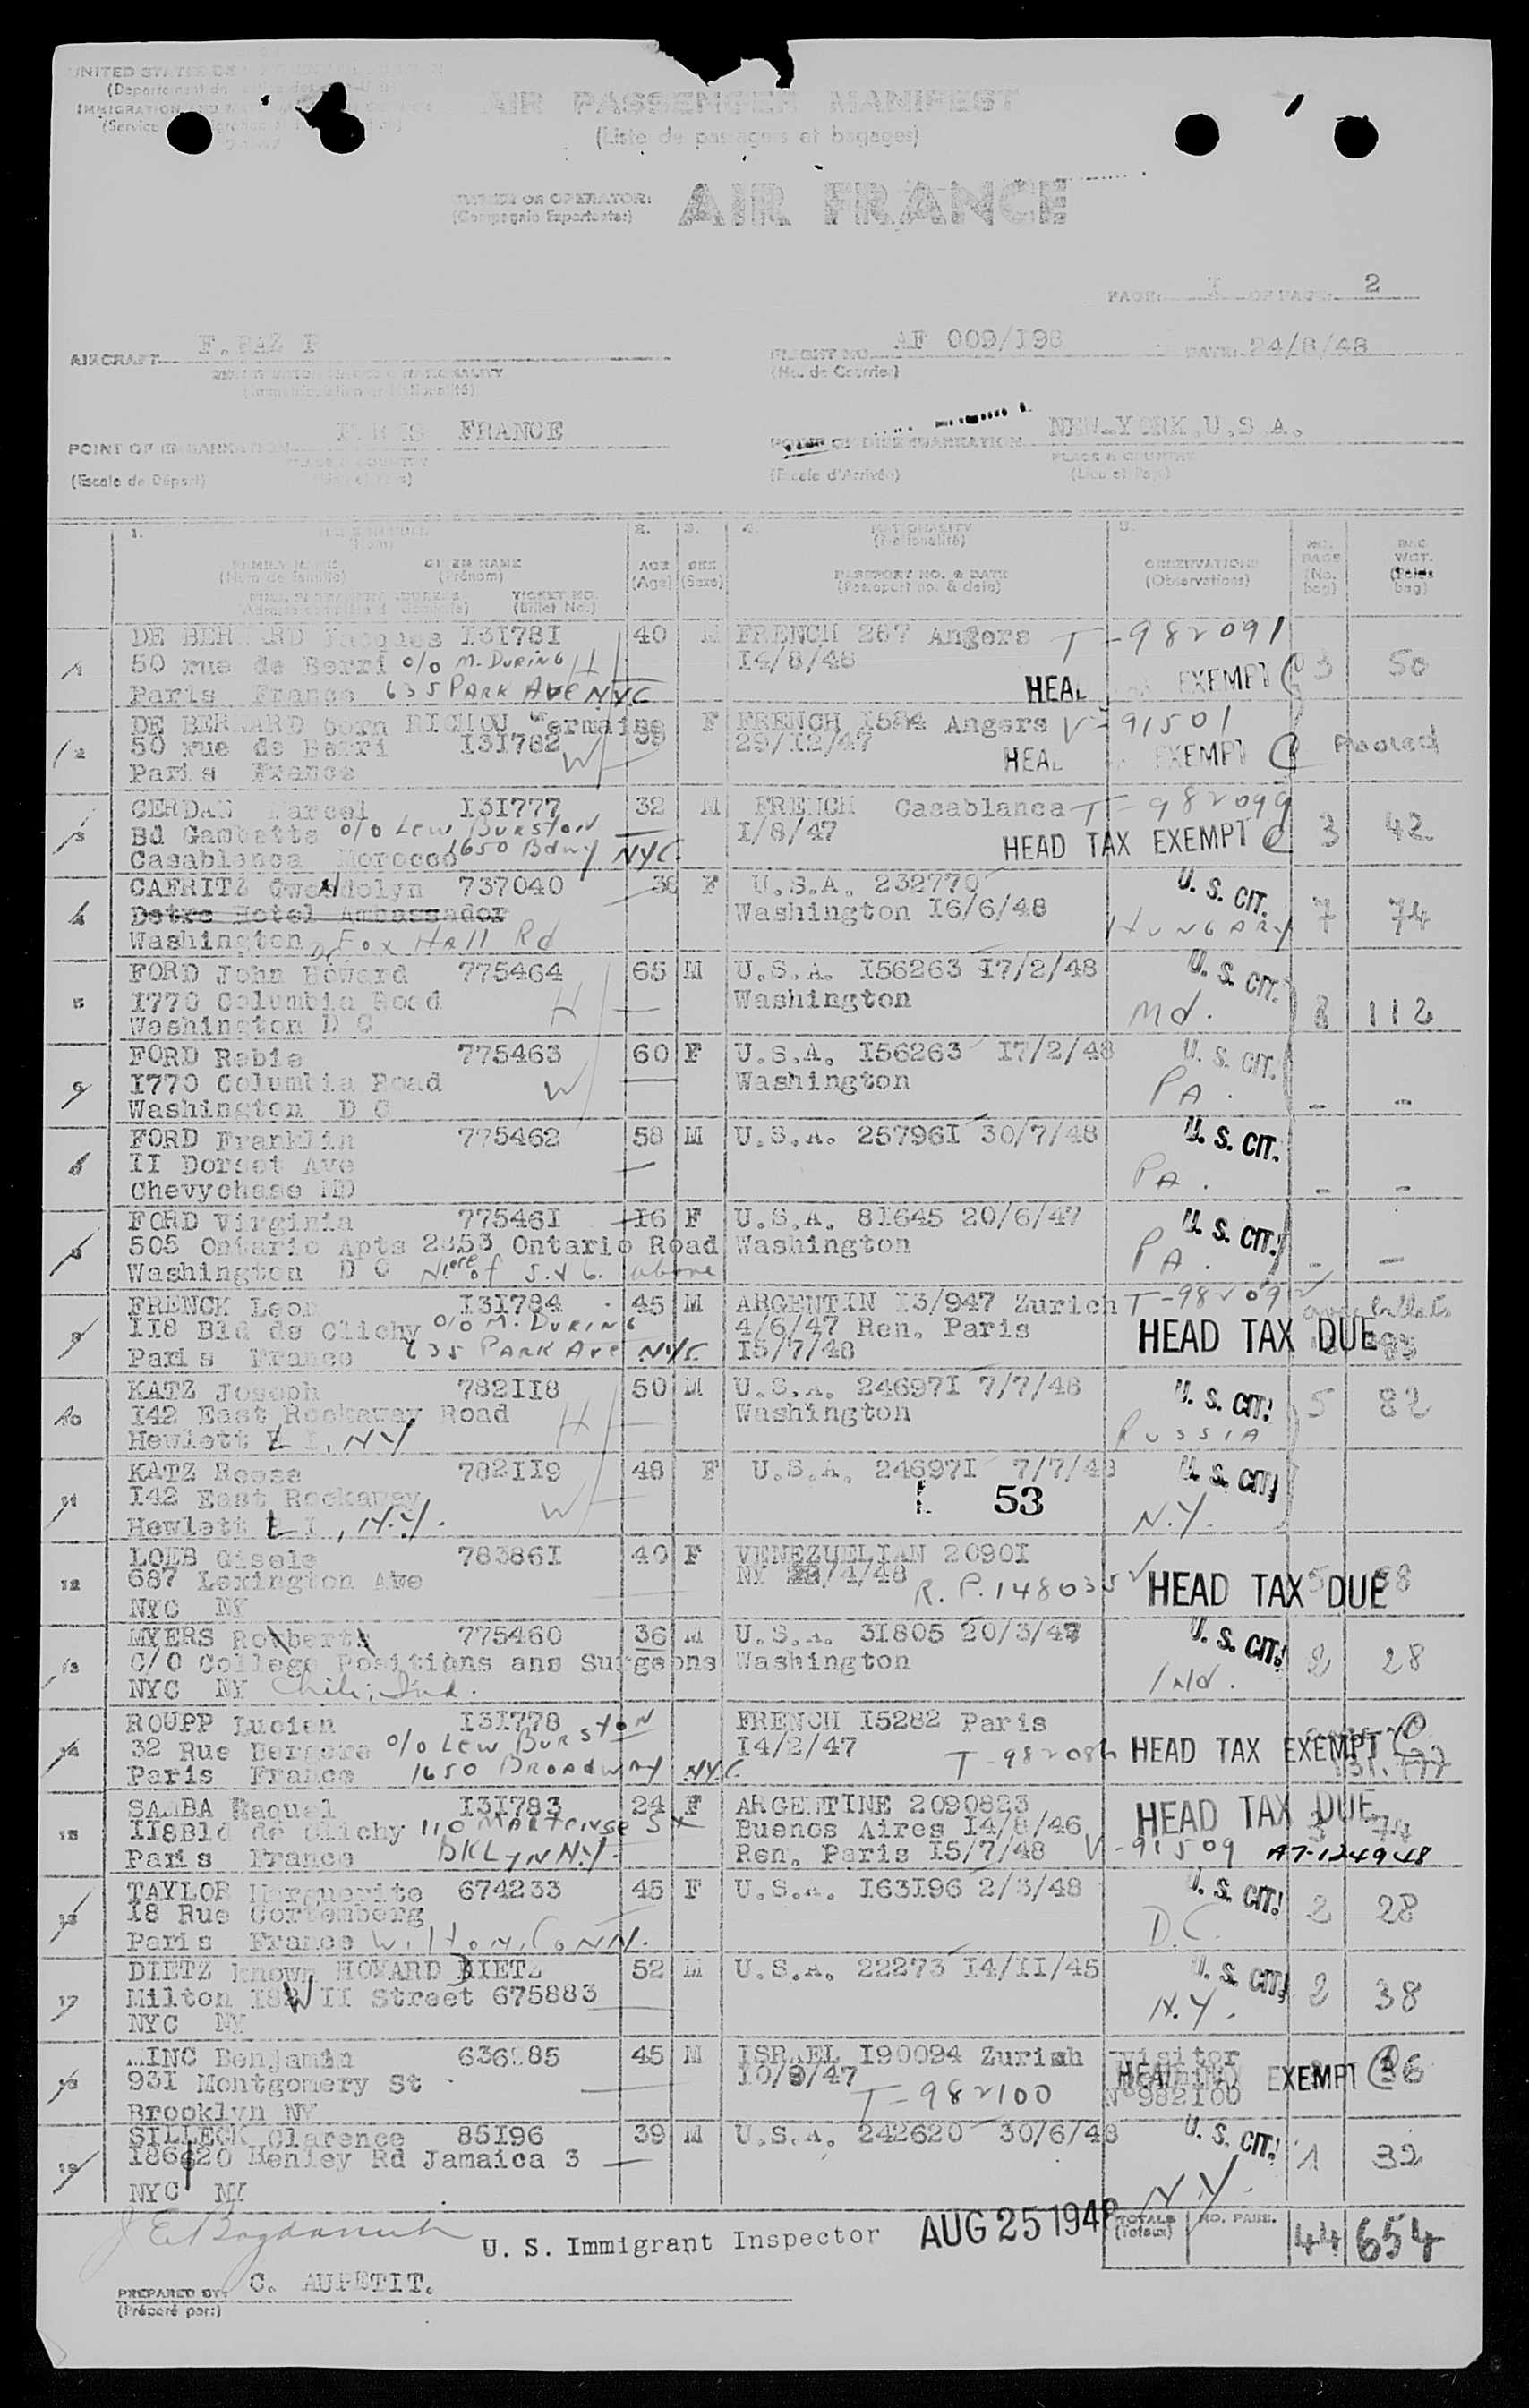 AIR PASSENGER MANIFEST
(Liste de passagers et bagages)
OR OPERATOR: AIR FRANCE
(Compagnie Exportente:)
PAGE: I OF PAGE: 2
AIRCRAFT F.BAZ P
FLIGHT NO. AF 009/198 DATE: 24/8/48
(No. de Courrier)
POINT OF EMBARKATION PARIS FRANCE
NEW-YORK.U.S.A.
PLACE & COUNTRY
(Escale de Départ)
(Escale d'Arrivée) (Lieu et Pays)
1. 2. 3. 4. NATIONALITY 5.
(Nom) (Nationalité)
FAMILY NAME GIVEN NAME AGE SEX PASSPORT NO. & DATE OBSERVATIONS NO. BAGS BAG WGT.
(Nom de famille) (Prénom) (Age) (Sexe) (Passeport no. & date) (Observations) (No. bag) (Poids bag)
TICKET NO.
(Billet No.)
1 DE BERNARD Jacques I3I78I 40 M FRENCH 267 Angers T-982091
50 rue de Berri c/o M. DURING H I4/8/48 3 50
Paris France 635 PARK AVE NYC HEAD TAX EXEMPT
2 DE BERNARD born RICHOU Germaine F FRENCH I584 Angers V-91501
50 rue de Berri I3I782 W 29/I2/47 Pooled
Paris France HEAD TAX EXEMPT
3 CERDAN Marcel I3I777 32 M FRENCH Casablanca T-982099
Bd Gambetta c/o Lew Burston I/8/47 3 42
Casablanca Morocco 1650 Bdwy NYC. HEAD TAX EXEMPT
4 CAFRITZ Gwendolyn 737040 38 F U.S.A. 232770 U. S. CIT.
Detro Hotel Ambassador Washington I6/6/48 7 74
Washington Fox Hall Rd HUNGARY
5 FORD John Howard 775464 65 M U.S.A. I56263 I7/2/48 U. S. CIT.
I770 Columbia Road H Washington 8 112
Washington D C Md.
6 FORD Rebie 775463 60 F U.S.A. I56263 I7/2/48 U. S. CIT.
I770 Columbia Road W Washington
Washington D C PA. - -
FORD Franklin 775462 58 M U.S.A. 25796I 30/7/48 U. S. CIT.
II Dorset Ave
Chevychase MD PA. - -
FORD Virginia 77546I I6 F U.S.A. 81645 20/6/47 U. S. CIT.
505 Ontario Apts 2853 Ontario Road Washington
Washington D C Niece of 5. & 6. above PA. - -
9 FRENCK Leon I3I784 45 M ARGENTIN I3/947 Zurich T-982092
II8 Bld de Clichy c/o M. DURING 4/6/47 Ren. Paris
Paris France 635 PARK AVE NYC I5/7/48 HEAD TAX DUE
10 KATZ Joseph 782II8 50 M U.S.A. 24697I 7/7/48 U. S. CIT.
I42 East Rockaway Road H Washington 5 82
Hewlett L I, NY RUSSIA
11 KATZ Reese 782II9 48 F U.S.A. 24697I 7/7/48 U. S. CIT.
I42 East Rockaway W 53
Hewlett L I, N.Y. N.Y.
12 LOEB Gisele 78386I 40 F VENEZUELIAN 2090I
687 Lexington Ave NY /4/48 R. P. 148035
NYC NY HEAD TAX DUE
13 MYERS Robert 775460 36 M U.S.A. 3I805 20/3/47 U. S. CIT.
C/O College Positians ans Surgeons Washington 2 28
NYC NY Ind. Ind.
14 ROUPP Lucien I3I778 FRENCH I5282 Paris
32 Rue Bergere c/o Lew Burston I4/2/47 HEAD TAX EXEMPT
Paris France 1650 BROADWAY NYC T-98208
15 SAMBA Raquel I3I783 24 F ARGENTINE 2090823 HEAD TAX DUE
II8Bld de Clichy 110 Martense St Buenos Aires I4/8/46 3 74
Paris France BKLYN N.Y. Ren. Paris I5/7/48 V-91509 A7-124948
TAYLOR Marguerite 674233 45 F U.S.A. I63I96 2/3/48 U. S. CIT.
I8 Rue Cortemberg 2 28
Paris France Wilton, Conn. D.C.
17 DIETZ known HOWARD DIETZ 52 M U.S.A. 22273 I4/II/45 U. S. CIT.
Milton W II Street 675883 2 38
NYC NY N.Y.
MINC Benjamin 45 M ISRAEL I90094 Zurich visitor
93I Montgomery St I0/9/47 HEAD TAX EXEMPT
Brooklyn NY T-982100 N°982I00
19 SILLECK Clarence 85I96 39 M U.S.A. 242620 30/6/48 U. S. CIT.
20 Henley Rd Jamaica 3 1 32
NYC NY N.Y.
U. S. Immigrant Inspector AUG 25 1948 TOTALS (Totaux) NO. PASS. 44 654
PREPARED BY: C. AUPETIT.
(Préparé par:)